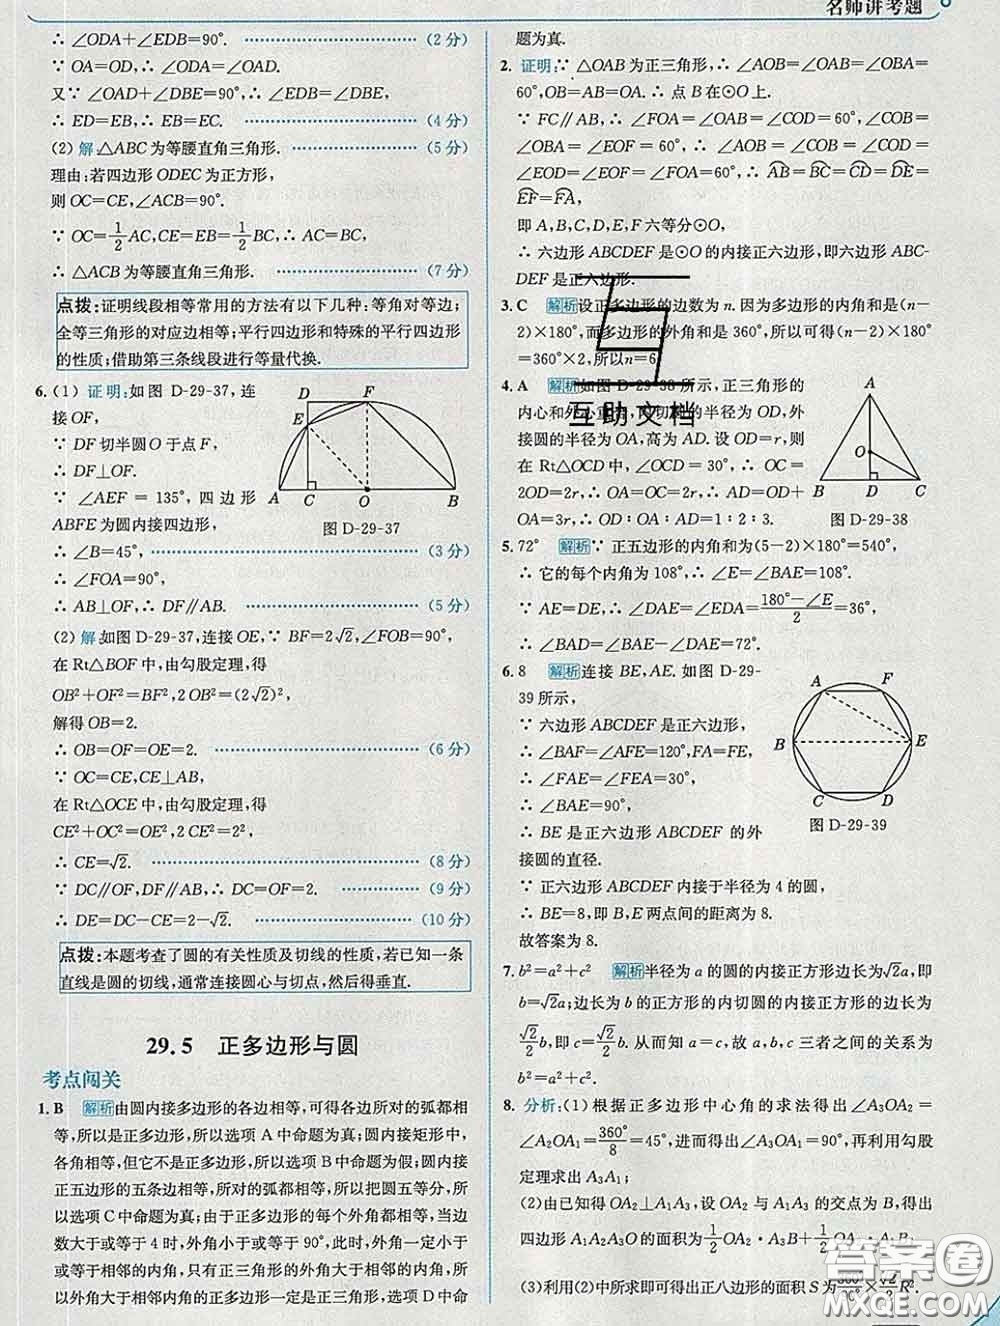 名师讲考题
∴ ∠ODA+∠EDB=90°. (2分)
∵ OA=OD,∴ ∠ODA=∠OAD.
又∵ ∠OAD+∠DBE=90°,∴ ∠EDB=∠DBE.
∴ ED=EB,∴ EB=EC. (4分)
(2) 解:△ABC为等腰直角三角形. (5分)
理由:若四边形ODEC为正方形,
则OC=CE,∠ACB=90°.
∵ OC=1/2AC,CE=EB=1/2BC,∴ AC=BC.
∴ △ACB为等腰直角三角形. (7分)
点拨:证明线段相等常用的方法有以下几种:等角对等边;
全等三角形的对应边相等;平行四边形和特殊的平行四边形
的性质;借助第三条线段进行等量代换.
6. (1) 证明:如图D-29-37,连
接OF,
∵ DF切半圆O于点F,
∴ DF⊥OF.
∵ ∠AEF=135°,四边形
ABFE为圆内接四边形,
∴ ∠B=45°, (3分)
∴ ∠FOA=90°,
∴ AB⊥OF,∴ DF∥AB. (5分)
D F E A C O B
图D-29-37
(2) 解:如图D-29-37,连接OE,∵ BF=2√2,∠FOB=90°,
在Rt△BOF中,由勾股定理,得
OB²+OF²=BF²,2OB²=(2√2)².
解得OB=2.
∴ OB=OF=OE=2. (6分)
∵ OC=CE,CE⊥AB,
在Rt△OCE中,由勾股定理,得
CE²+OC²=OE²,2CE²=2²,
∴ CE=√2. (8分)
∵ DC∥OF,DF∥AB,∴ DC=OF=2. (9分)
∴ DE=DC-CE=2-√2. (10分)
点拨:本题考查了圆的有关性质及切线的性质,若已知一条
直线是圆的切线,通常连接圆心与切点,然后得垂直.
29.5 正多边形与圆
考点闯关
1. B 解析 由圆内接多边形的各边相等,可得各边所对的弧都相
等,所以是正多边形,所以选项A中命题为真;圆内接矩形中,
各角相等,但它不是正多边形,所以选项B中命题为假;圆内接
正五边形的五条边相等,所对的弧都相等,所以把圆五等分,所
以选项C中命题为真;由于正多边形的每个外角都相等,当边
数大于或等于4时,外角小于或等于90°,此时,外角一定小于
或等于相邻的内角,只有正三角形的外角大于相邻的内角,所
以外角大于内角的正多边形一定是正三角形,选项D中命
题为真.
2. 证明:∵ △OAB为正三角形,∴ ∠AOB=∠OAB=∠OBA=
60°,OB=AB=OA.∴ 点B在⊙O上.
∵ FC∥AB,∴ ∠FOA=∠OAB=∠COD=60°,∠COB=
∠OBA=∠EOF=60°,∴ ∠AOB=∠COB=∠COD=
∠EOD=∠EOF=∠FOA=60°,∴ AB=BC=CD=DE=
EF=FA,
即A,B,C,D,E,F六等分⊙O.
∴ 六边形ABCDEF是⊙O的内接正六边形,即六边形ABC-
DEF是正六边形.
3. C 解析 设正多边形的边数为n.因为多边形的内角和是(n-
2)×180°,而多边形的外角和是360°,所以可得(n-2)×180°
=360°×2,所以n=6.
4. A 解析 如图D-29-38所示,正三角形的
内心和外心重合,内切圆的半径为OD,外
接圆的半径为OA,高为AD.设OD=r,则
在Rt△OCD中,∠OCD=30°,∴ OC=
2OD=2r,∴ OA=2r,∴ AD=OD+
OA=3r,∴ OD∶OA∶AD=1∶2∶3.
A O B D C
图D-29-38
5. 72° 解析 ∵ 正五边形的内角和为(5-2)×180°=540°,
∴ 它的每个内角为108°,∴ ∠E=∠BAE=108°.
∵ AE=DE,∴ ∠DAE=∠EDA=(180°-∠E)/2=36°,
∴ ∠BAD=∠BAE-∠DAE=72°.
6. 8 解析 连接BE,AE.如图D-29-
39所示,
∵ 六边形ABCDEF是正六边形,
∴ ∠BAF=∠AFE=120°,FA=FE,
∴ ∠FAE=∠FEA=30°,
∴ ∠BAE=90°,
∴ BE是正六边形ABCDEF的外
接圆的直径.
A F B E C D
图D-29-39
∵ 正六边形ABCDEF内接于半径为4的圆,
∴ BE=8,即B,E两点间的距离为8.
故答案为8.
7. b²=a²+c² 解析 半径为a的圆的内接正方形边长为√2a,即
b=√2a;边长为b的正方形的内切圆的内接正方形的边长为
√2/2b,即c=√2/2b,所以a=c,故a,b,c三者之间的关系为
b²=a²+c².
8. 分析:(1)根据正多边形中心角的求法得出∠A₃OA₂=
∠A₂OA₁=360°/8=45°,进而得出∠A₃OA₁=90°,再利用勾股
定理求出A₃A₁;
(2)由已知得OA₂⊥A₁A₃,设OA₂与A₁A₃的交点为B,得出
四边形A₁A₂A₃O的面积为1/2OA₂·A₃B+1/2OA₂·A₁B;
(3)利用(2)中所求即可得出正八边形的面积S为
互助文档
答案圈
MXQE.COM